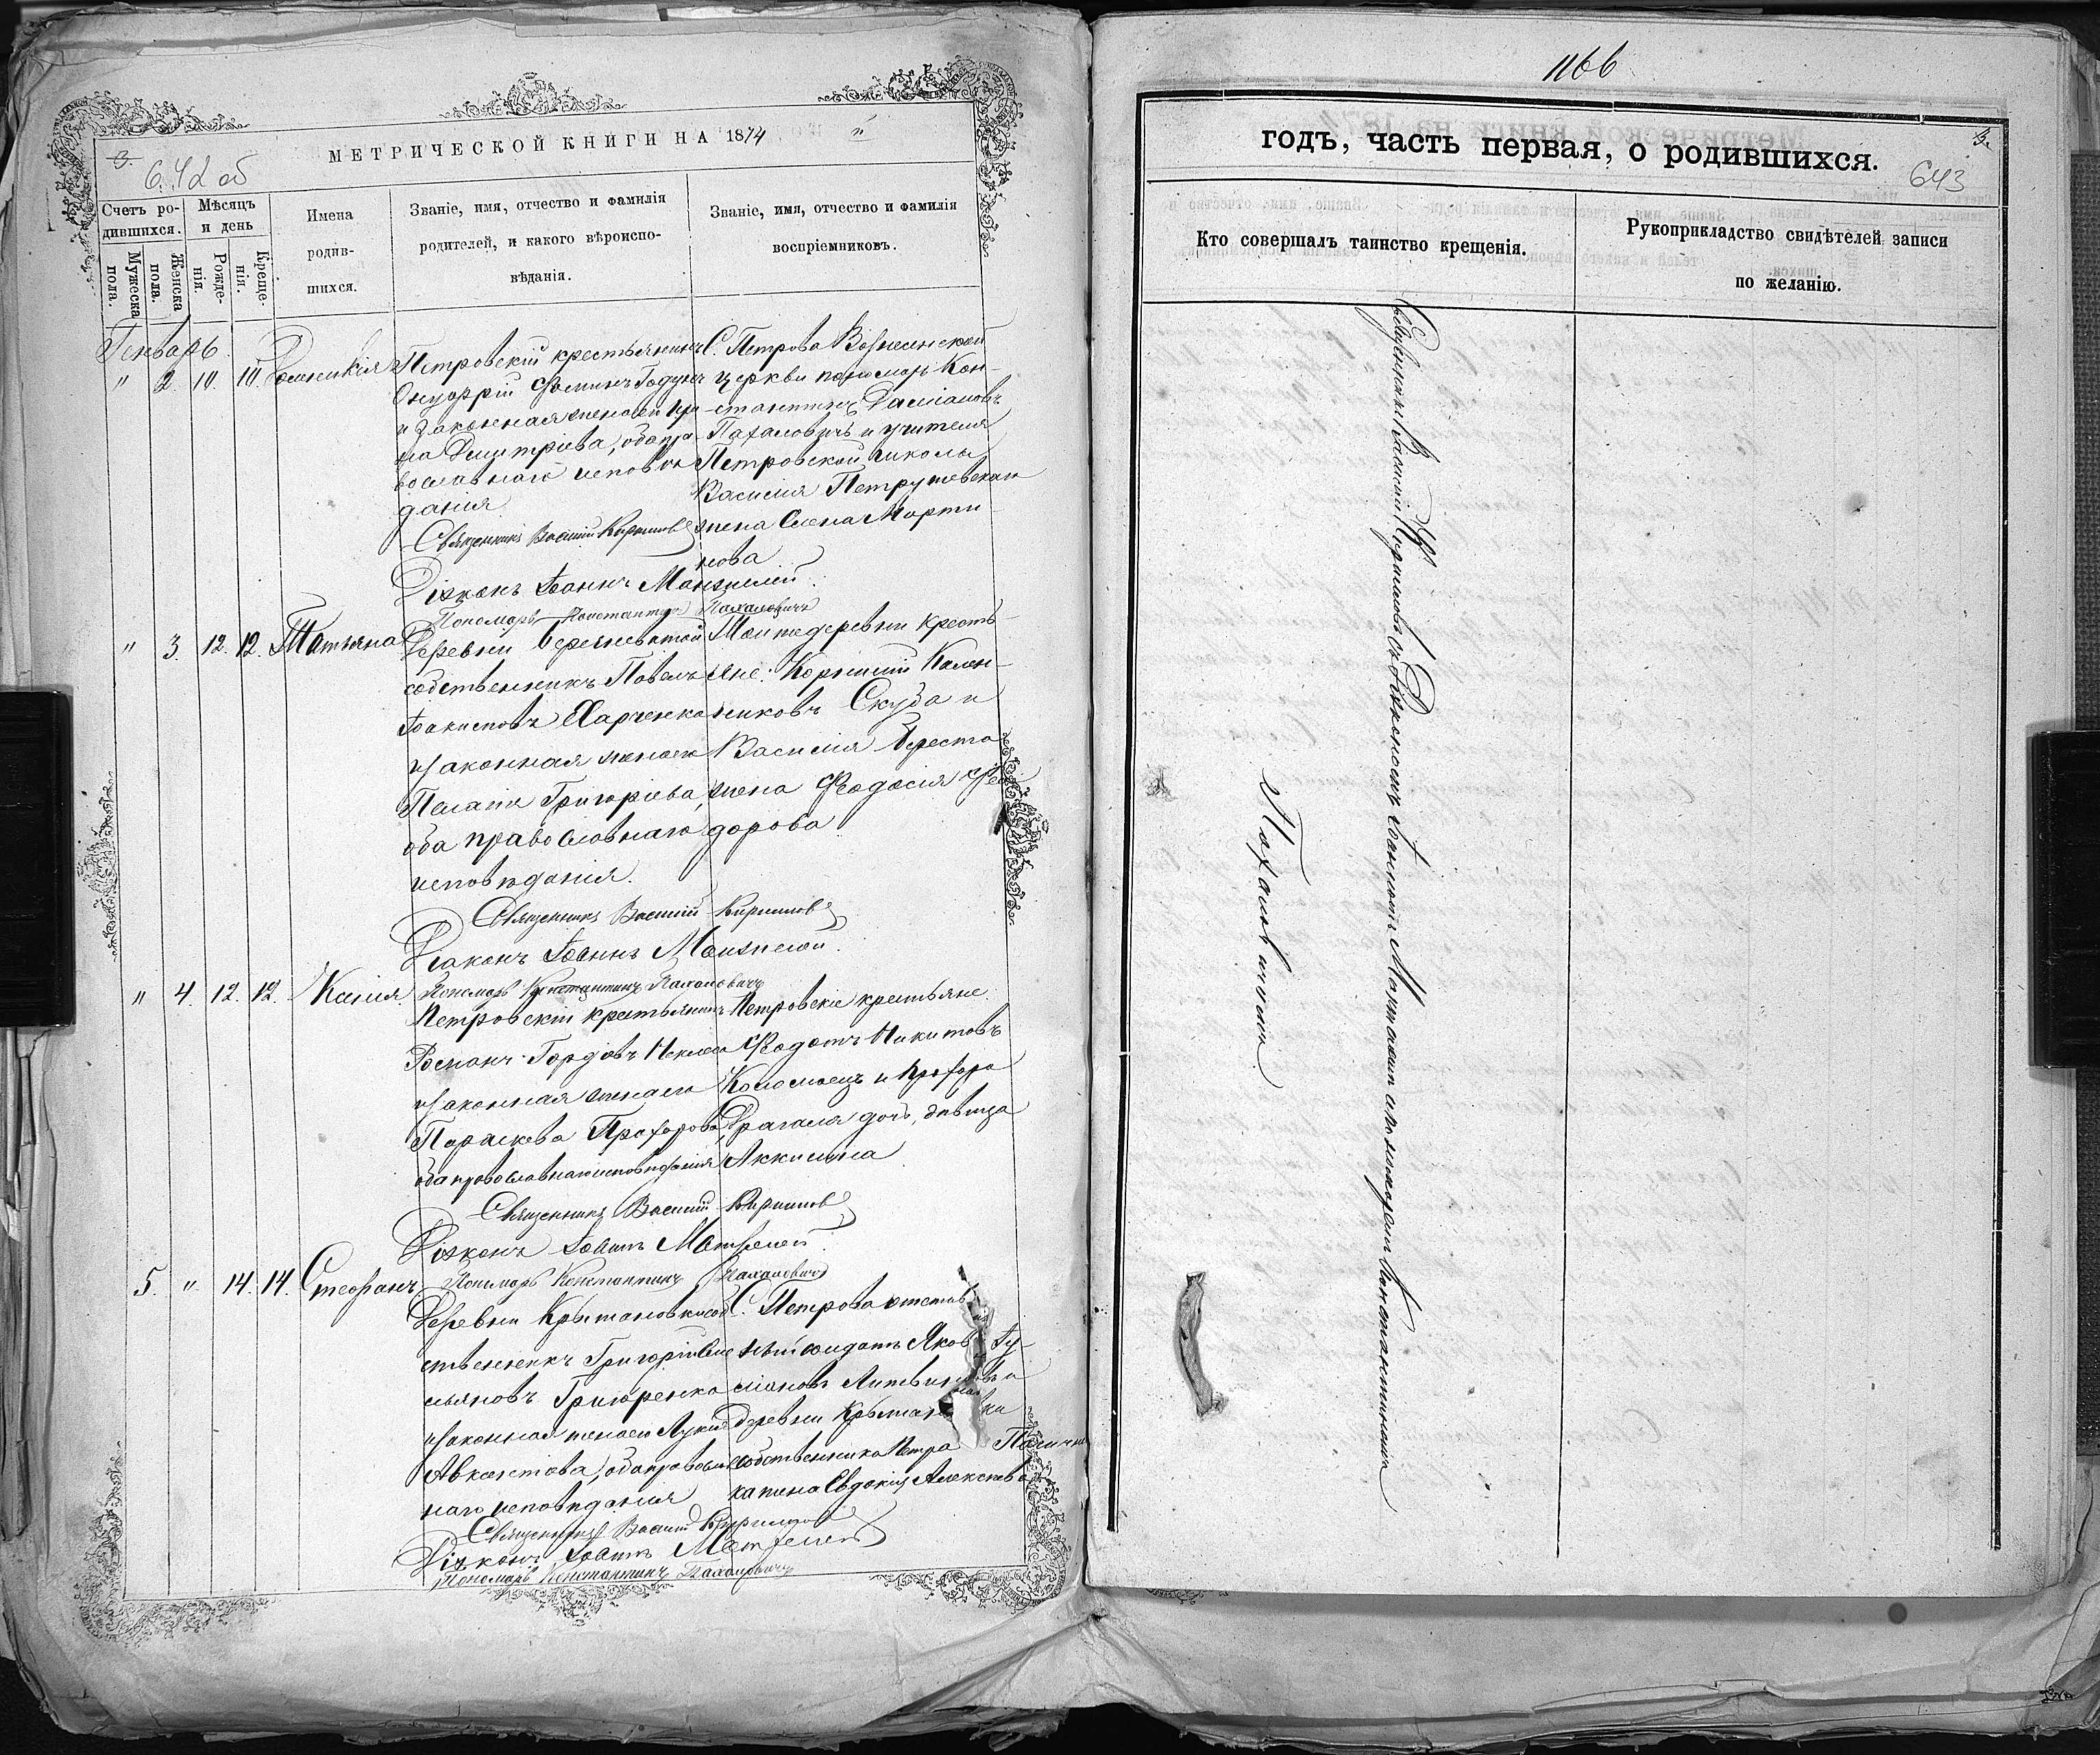 МЕТРИЧЕСКОЙ КНИГИ НА 1874
3.
642 об
Счетъ ро-
дившихся.
Мужеска
пола.
Женска
пола.
Мѣсяцъ
и день
Рожде-
нія.
Креще-
нія.
Имена
родив-
шихся.
Званіе, имя, отчество и фамилія
родителей, и какого вѣроиспо-
вѣданія.
Званіе, имя, отчество и фамилія
воспріемниковъ.
Генварь
" 2. 10. 10. Домникія
Петровскій крестьянинъ
Онуфрій Ѳоминъ Годунъ
и законная жена его Ири
на Димитріева, оба пра
вославнаго исповѣ
данія
С. Петрова Вознесенской
церкви пономарь Кон-
стантинъ Даміановъ
Пахаловичъ и учителя
Петровской школы
Василія
жена Елена Марти
нова
Священникъ Василій Кириловъ
Діяконъ Іоаннъ
Пономарь Константинъ Пахаловичъ
" 3. 12. 12. Татьяна
Деревни
собственникъ Павелъ
Іоакимовъ Харченко
и законная жена его
Пелагія Григоріева,
оба православнаго
исповѣданія.
Той же деревни кресть
яне: Корнилій Кален-
никовъ Скуба и
Василія Береста
жена Ѳеодосія Ѳео
дорова
Священникъ Василій Кириловъ
Діаконъ Іоаннъ
Пономарь Константинъ Пахаловичъ
" 4. 12. 12. Ксенія.
Петровскій крестьянинъ
Романъ Гордѣевъ
и законная жена его
Параскева Прохорова
оба православнаго исповѣданія
Петровскіе крестьяне.
Ѳедотъ Никитовъ
Коломоецъ и Прохора
Драгаля дочь, дѣвица
Аккилина
Священникъ Василій Кириловъ
Діяконъ Іоаннъ
Пономарь Константинъ Пахаловичъ
5. " 14. 14. Стефанъ
Деревни соб
ственникъ Григорій Еме
льяновъ Григоренко
и законная жена его Лукія
Авксентіева, оба православ
наго исповѣданія
С. Петрова отстав
ный солдатъ Яковъ
Литвиновъ и
деревни
собственника Петра
жена Евдокія Алексѣева
Священникъ Василій Кириловъ
Діяконъ Іоаннъ
Пономарь Константинъ Пахаловичъ
1166
годъ, часть первая, о родившихся.
3.
643
Кто совершалъ таинство крещенія.
Рукоприкладство свидѣтелей записи
по желанію.
Священникъ Василій Кириловъ съ Діякономъ Іоанномъ и пономаремъ Константиномъ
Пахаловичемъ.